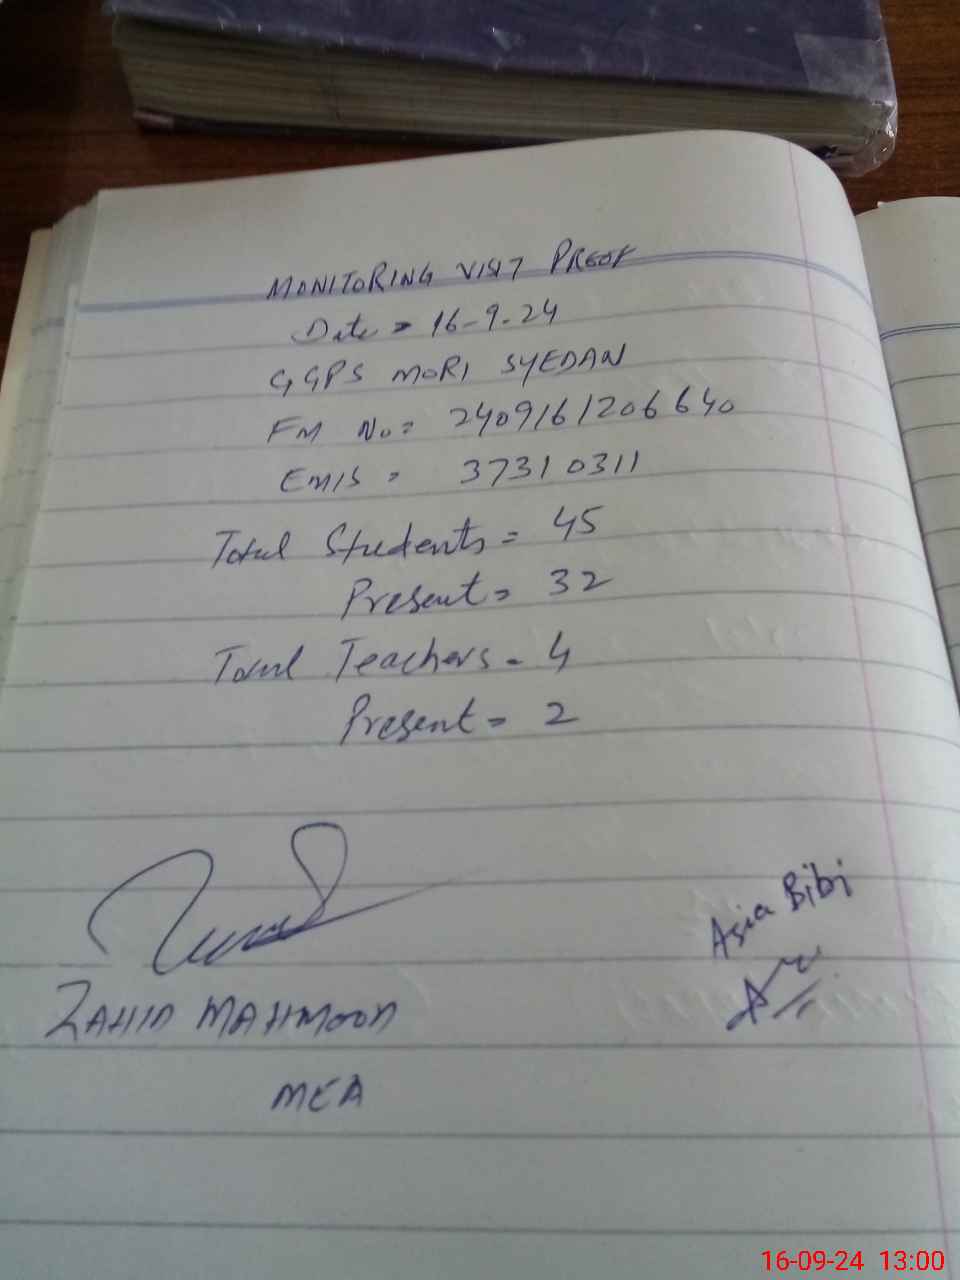 MONITORING VISIT PROOF
Date = 16-9-24
GGPS MORI SYEDAN
FM No = 2409161206640
EMIS = 37310311
Total Students = 45
Present = 32
Total Teachers = 4
Present = 2
Asia Bibi
ZAHID MAHMOOD
MEA
16-09-24 13:00